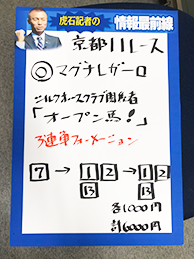 虎石記者の
情報最前線
京都11レース
◎マグナレガーロ
シルクホースクラブ関係者
「オープン馬!」
3連単フォーメーション
7→1 2→1 2
13 13
各1000円
計6000円